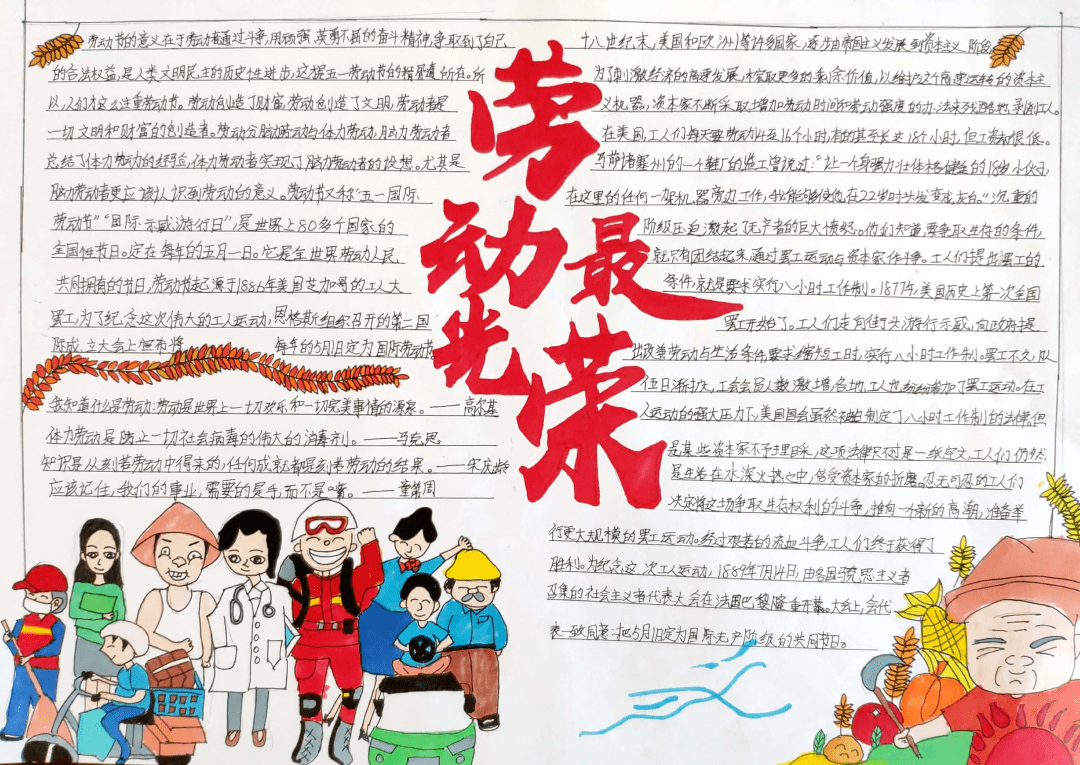 劳动节的意义在于劳动者通过斗争,用顽强、英勇不屈的奋斗精神,争取到了自己
的合法权益,是人类文明民主的历史性进步,这才是五一劳动节的精髓所在。所
以,人们才这么注重劳动节。劳动创造了财富,劳动创造了文明,劳动者是
一切文明和财富的创造者。劳动分脑力劳动与体力劳动,脑力劳动者
总结了体力劳动的经验,体力劳动者实现了脑力劳动者的设想。尤其是
脑力劳动者更应该认识到劳动的意义。劳动节又称“五一国际
劳动节”“国际示威游行日”,是世界上80多个国家的
全国性节日。定在每年的五月一日。它是全世界劳动人民
共同拥有的节日,劳动节起源于1886年美国芝加哥的工人大
罢工,为了纪念这次伟大的工人运动,恩格斯组织召开的第二国
际成立大会上宣布将 每年的5月1日定为国际劳动节
我知道什么是劳动:劳动是世界上一切欢乐和一切完美事情的源泉。——高尔基
体力劳动是防止一切社会病毒的伟大的消毒剂。——马克思
知识是从刻苦劳动中得来的,任何成就都是刻苦劳动的结果。——宋庆龄
应该记住,我们的事业,需要的是手,而不是嘴。——童第周
劳动最光荣
十八世纪末,美国和欧洲的许多国家,逐步由帝国主义发展到资本主义阶段
为了刺激经济的高速发展,榨取更多的剩余价值,以维护这个高速运转的资本主
义机器,资本家不断采取增加劳动时间和劳动强度的办法来残酷地剥削工人。
在美国,工人们每天要劳动14至16个小时,有的甚至长达18个小时,但工资却很低。
马萨诸塞州的一个鞋厂的监工曾说过:“让一个身强力壮体格健全的18岁小伙子,
在这里的任何一架机器旁边工作,我能够使他在22岁时头发变成灰白。”沉重的
阶级压迫激起了无产者的巨大愤怒。他们知道,要争取生存的条件,
就只有团结起来,通过罢工运动与资本家作斗争。工人们提出罢工的
条件,就是要求实行八小时工作制。1877年,美国历史上第一次全国
罢工开始了。工人们走向街头游行示威,向政府提
出改善劳动与生活条件,要求缩短工时,实行八小时工作制。罢工不久,队
伍日渐扩大,工会会员人数激增,各地工人也纷纷参加了罢工运动。在工
人运动的强大压力下,美国国会虽然被迫制定了八小时工作制的法律。但
是某些资本家不予理采,这项法律只不过是一张空文,工人们仍然
是生活在水深火热之中,倍受资本家的折磨。忍无可忍的工人们
决定将这场争取生存权利的斗争,推向一个新的高潮,准备举
行更大规模的罢工运动。经过艰苦的流血斗争,工人们终于获得了
胜利。为纪念这次工人运动,1889年7月14日,由各国马克思主义者
召集的社会主义者代表大会在法国巴黎隆重开幕。大会上,会代
表一致同意:把5月1日定为国际无产阶级的共同节日。